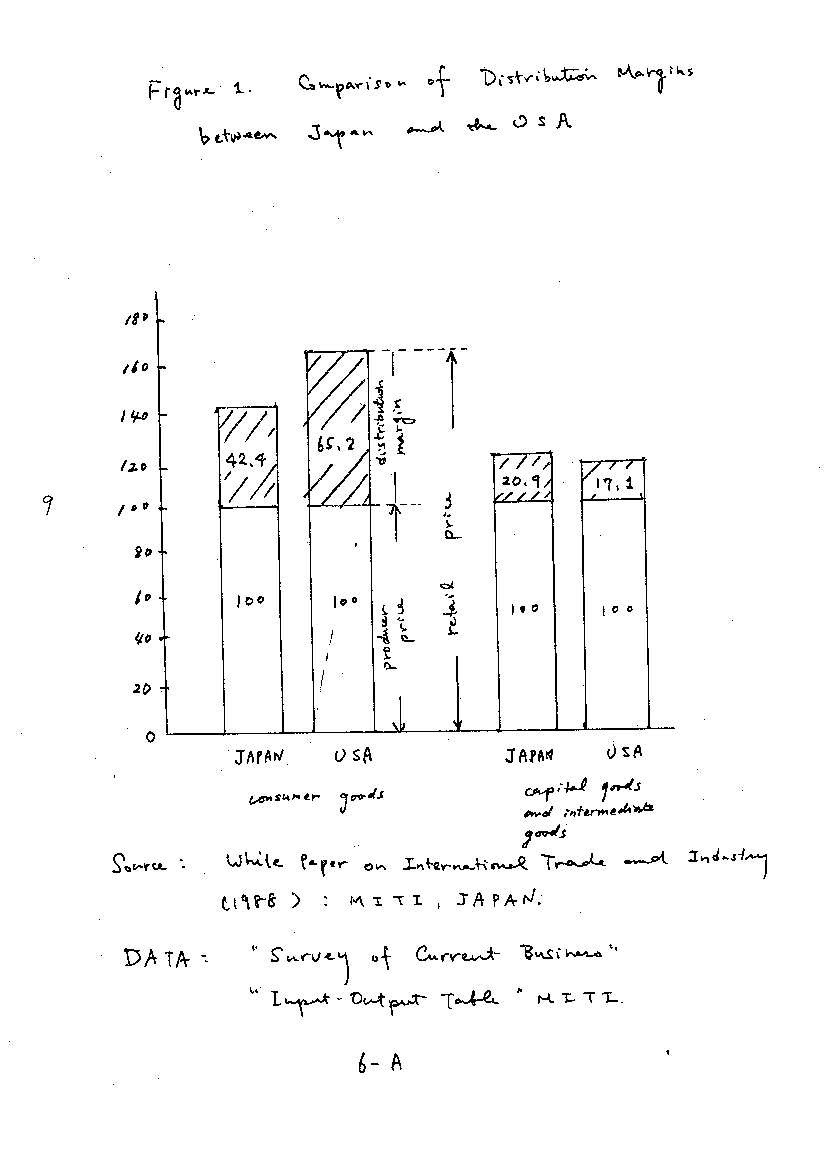 Figure 1. Comparison of Distribution Margins
between Japan and the USA
180
160
140
120
100
80
60
40
20
0
9
42.4
65.2
20.9
17.1
100
100
100
100
distribution
margin
producer
price
retail price
JAPAN USA JAPAN USA
consumer goods
capital goods
and intermediate
goods
Source : While Paper on International Trade and Industry
(1988) : MITI, JAPAN.
DATA : "Survey of Current Business"
"Input-Output Table" MITI.
6-A